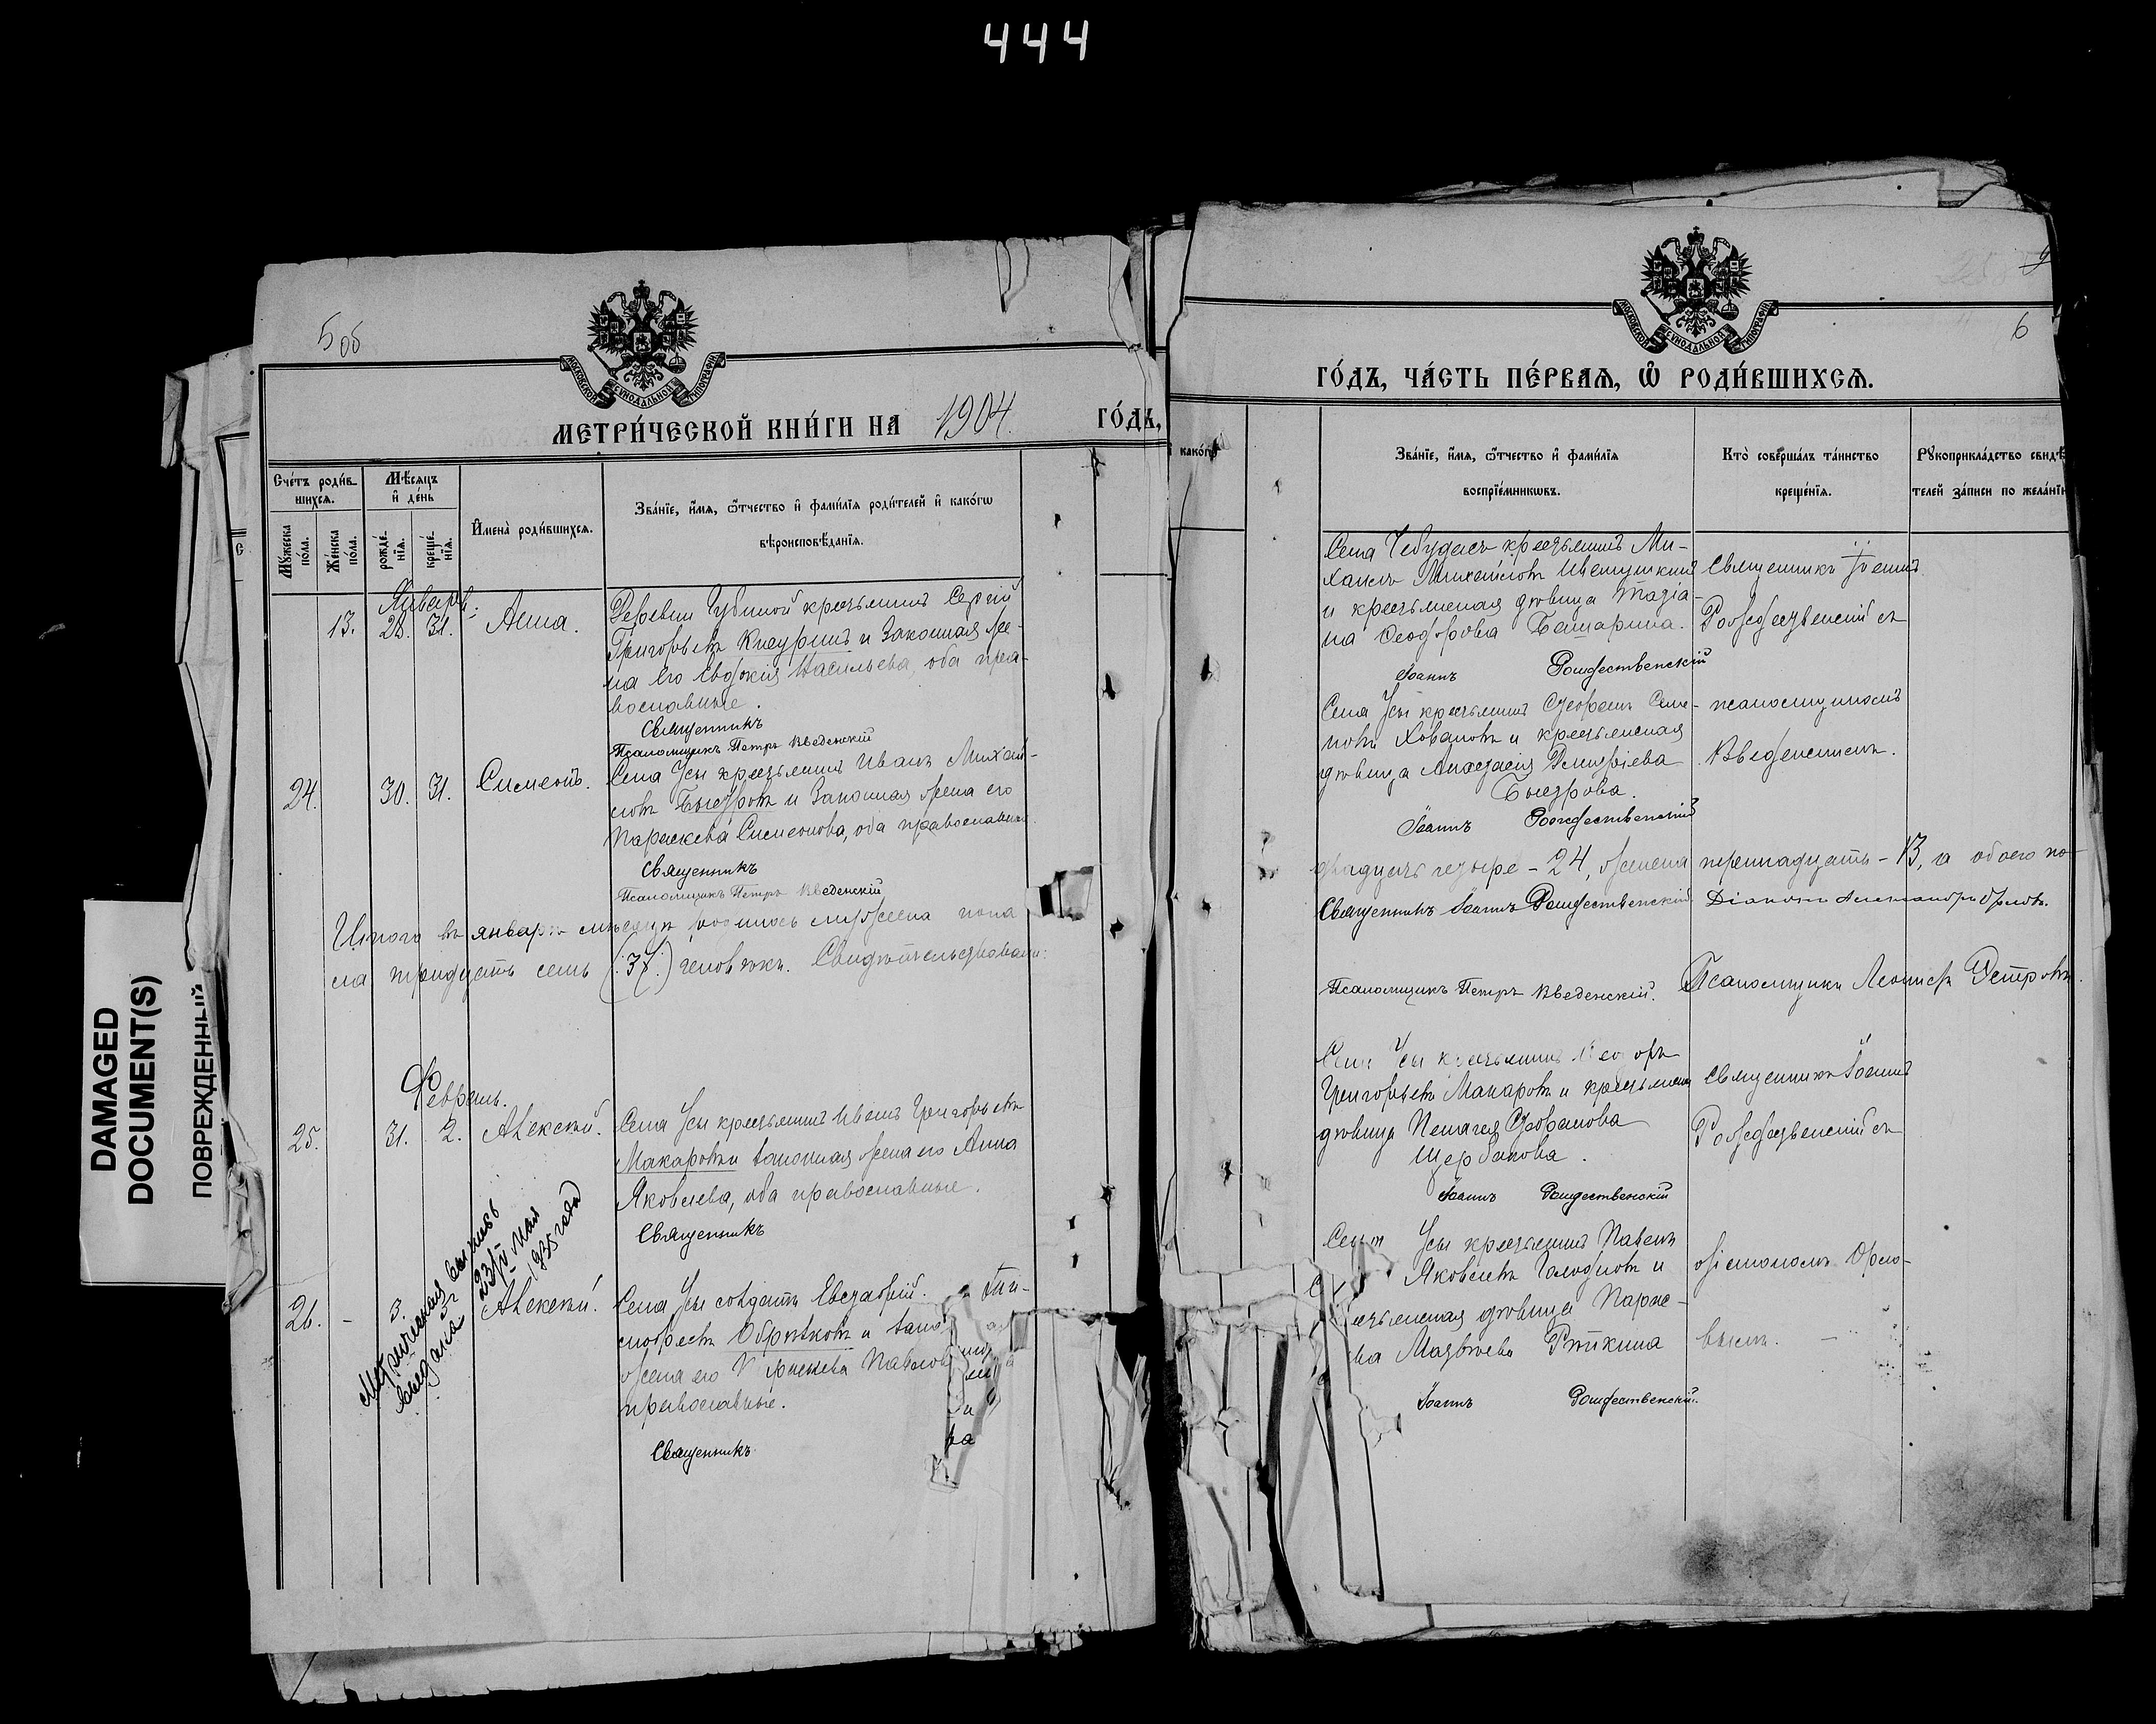 444
5 об
МОСКОВСКОЙ СѴНОДАЛЬНОЙ ТИПОГРАФІИ
МЕТРИ́ЧЕСКОЙ КНИ́ГИ НА 1904. ГО́ДЪ,
Сче́тъ роди́в-
шихся.
Мѣ́сяцъ
и де́нь
Му́жеска
по́ла.
Же́нска
по́ла.
рожде́-
нія.
креще́-
нія.
Имена̀ роди́вшихся.
Зва́ніе, и́мя, ѻ҆́тчество и фами́лія роди́телей и како́гѡ
вѣроисповѣ́данія.
Январь.
13. 28. 31. Анна.
Деревни Губиной крестьянинъ Сергій
Григорьевъ и законная же-
на его Евдокія Васильева, оба пра-
вославные.
Священникъ
Псаломщикъ Петръ Введенскій
24. 30. 31. Симеонъ.
Села Усы крестьянинъ Иванъ Михай-
ловъ Быстровъ и законная жена его
Параскева Симеонова, оба православные.
Священникъ
Псаломщикъ Петръ Введенскій
Итого въ январѣ мѣсяцѣ родилось мужеска пола
ла тридцать семь (37.) человѣкъ. Свидѣтельствовали:
Февраль.
25. 31. 2. Алексѣй.
Села Усы крестьянинъ Иванъ Григорьевъ
Макаровъ и законная жена его Анна
Яковлева, оба православные.
Священникъ
26. - 3. Алексѣй.
Села Усы солдатъ Евстафій
и зако
жена его Павлов
православные.
Священникъ
Метрическая выпись
выдана 23/V Мая
1935 года
DAMAGED
DOCUMENT(S)
ПОВРЕЖДЕННЫЙ
МОСКОВСКОЙ СѴНОДАЛЬНОЙ ТИПОГРАФІИ
6
ГО́ДЪ, ЧА́СТЬ ПЕ́РВАЯ, Ѡ҆ РОДИ́ВШИХСЯ.
како́гѡ
Зва́ніе, и́мя, ѻ҆́тчество и фами́лія
воспріе́мниковъ.
Кто̀ соверша́лъ та́инство
креще́нія.
Рꙋкоприкла́дство свидѣ́
телей за́писи по жела́нію
Села крестьянинъ Ми-
хаилъ Михайловъ
и крестьянская дѣвица Татіа-
на Ѳеодорова Башарина.
Іоаннъ Рождественскій
Священникъ Іоаннъ
Рождественскій съ
псаломщикомъ
Введенскимъ.
Села Усы крестьянинъ Стефанъ Семе-
новъ Ховановъ и крестьянская
дѣвица Анастасія Димитріева
Быстрова.
Іоаннъ Рождественскій
двадцать четыре - 24, женска тринадцать - 13, а обоего по-
Священникъ Іоаннъ Рождественскій. Діаконъ Александръ Орловъ.
Псаломщикъ Петръ Введенскій. Псаломщикъ Петровъ.
Села Усы крестьянинъ
Григорьевъ Макаровъ и крестьянская
дѣвица Пелагея Стефанова
Щербакова.
Іоаннъ Рождественскій
Священникъ Іоаннъ
Рождественскій съ
діакономъ Орло-
вымъ.
Села Усы крестьянинъ Павелъ
Яковлевъ и
крестьянская дѣвица Параске-
ва Матвѣева Рѣпкина
Іоаннъ Рождественскій.